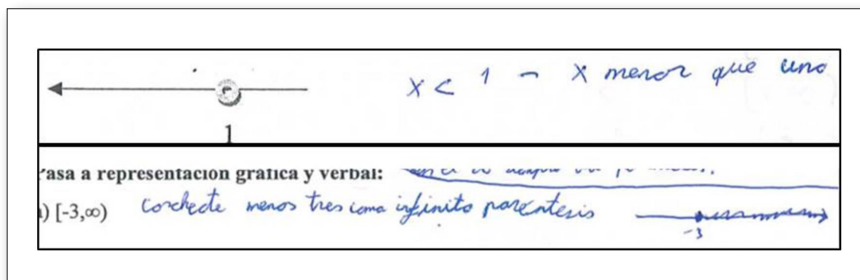 x < 1 - x menor que uno
1
Pasa a representación gráfica y verbal:
a) [-3,∞) corchete menos tres coma infinito parentesis
-3